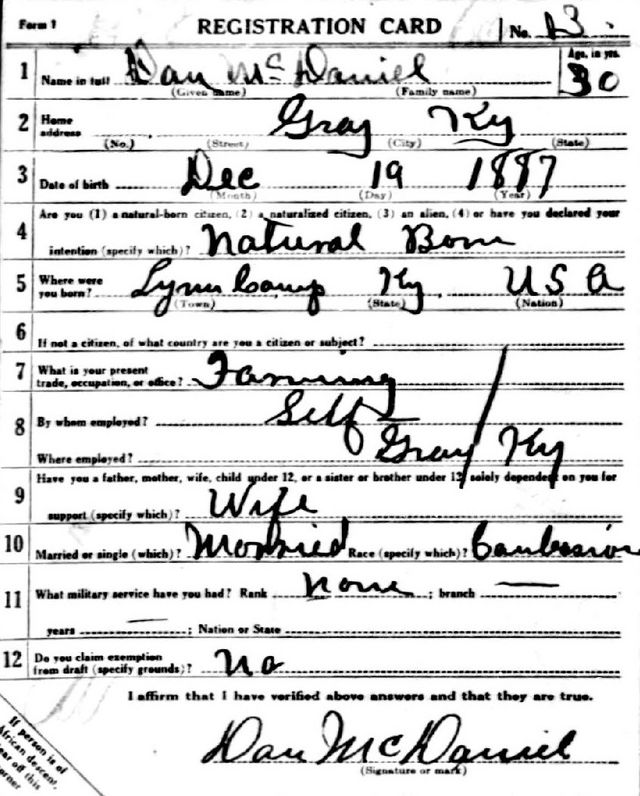 Form 1 REGISTRATION CARD No. 13
1 Name in full Dan McDaniel Age, in yrs. 30
(Given name) (Family name)
2 Home address Gray Ky
(No.) (Street) (City) (State)
3 Date of birth Dec 19 1887
(Month) (Day) (Year)
4 Are you (1) a natural-born citizen, (2) a naturalized citizen, (3) an alien, (4) or have you declared your
intention (specify which)? Natural Born
5 Where were you born? Lynn Camp Ky USA
(Town) (State) (Nation)
6 If not a citizen, of what country are you a citizen or subject?
7 What is your present trade, occupation, or office? Farming
8 By whom employed? Self
Where employed? Gray Ky
9 Have you a father, mother, wife, child under 12, or a sister or brother under 12, solely dependent on you for
support (specify which)? Wife
10 Married or single (which)? Married Race (specify which)? Caucasian
11 What military service have you had? Rank none ; branch —
years — ; Nation or State
12 Do you claim exemption from draft (specify grounds)? No
I affirm that I have verified above answers and that they are true.
Dan McDaniel
(Signature or mark)
If person is of
African descent,
tear off this
corner